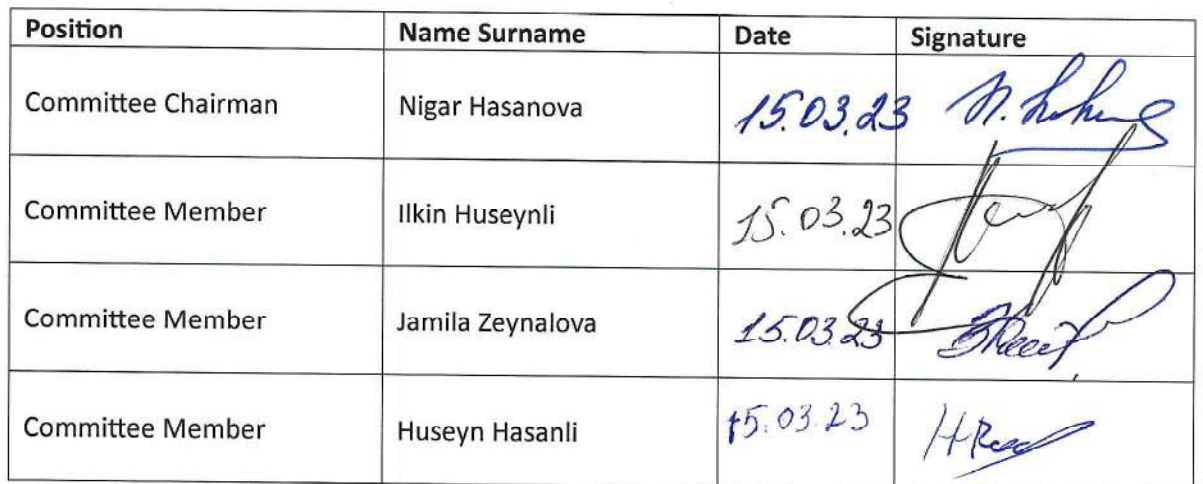 Position Name Surname Date Signature
Committee Chairman Nigar Hasanova 15.03.23
Committee Member Ilkin Huseynli 15.03.23
Committee Member Jamila Zeynalova 15.03.23
Committee Member Huseyn Hasanli 15.03.23